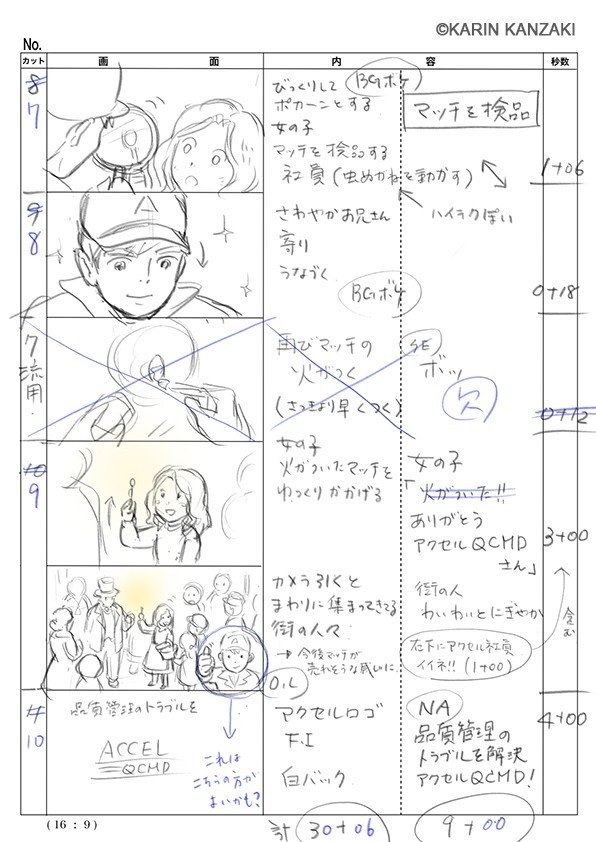 ©KARIN KANZAKI
No.
カット 画 面 内 容 秒数
8
7
びっくりして
ポカーンとする
BGボケ
女の子
マッチを検品する
社員(虫めがねを動かす)
マッチを検品
1+06
9
8
さわやかお兄さん
寄り
うなづく
BGボケ
ハイテクぽい
0+18
流用
再びマッチの
火がつく
(さっきより早くつく)
SE
ボッ
欠
0+12
10
9
女の子
火がついたマッチを
ゆっくりかかげる
女の子
「火がついた!!
ありがとう
アクセルQCMD
さん」
3+00
カメラ引くと
まわりに集まってきてる
街の人々
→今後マッチが
売れそうな感じに
O.L
街の人
わいわいとにぎやか
右下にアクセル社員
イイネ!!(1+00)
含む
11
10
品質管理のトラブルを
ACCEL
QCMD
これは
こちらの方が
よいかも?
アクセルロゴ
F.I
白バック
NA
品質管理の
トラブルを解決
アクセルQCMD!
4+00
(16:9)
計 30+06
9+00